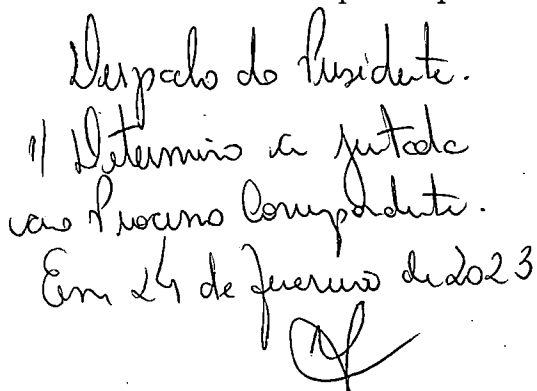 Despacho do Presidente.
1) Determino a juntada
ao Processo Correspondente.
Em 24 de fevereiro de 2023